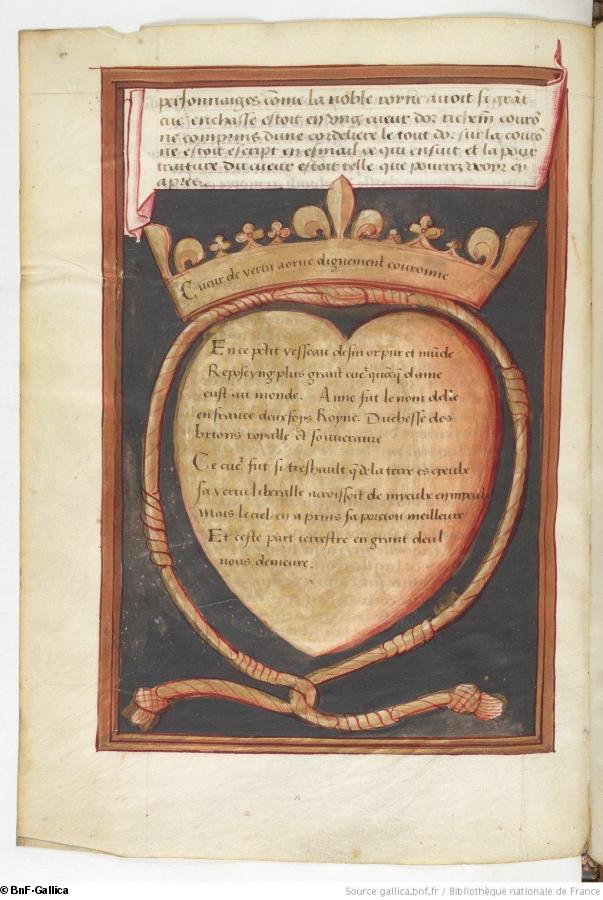 personnaiges cōme la noble royne auoit si grāt
cue' enchasse estoit en vng cueur dor richem̄ courō
ne comprins dune cordeliere le tout dor sur la courō
ne estoit escript en esmail ce qui ensuit et la pour
traiture du cueur estoit telle que pourrez veoyr cy
apres
Cueur de vertu aorne dignement couronne
En ce petit vesseau de fin or pur et mūde
Repose vng plus grant cue' dame
eust au monde. Anne fut le nom delle
en france deux foys Royne. Duchesse des
brtons royalle et souueraine
Ce cue' fut si treshault q de la terre es cyeulx
sa vertu liberalle accroissoit de myeulx en myeulx
Mais le ciel en a prins sa porcion meilleure
Et ceste part terrestre en grant deul
nous demeure.
© BnF-Gallica
Source gallica.bnf.fr / Bibliothèque nationale de France